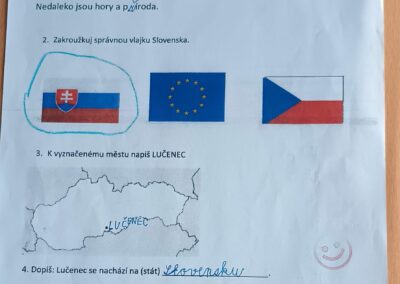 Nedaleko jsou hory a příroda.
2. Zakroužkuj správnou vlajku Slovenska.
3. K vyznačenému městu napiš LUČENEC
LUČENEC
4. Dopiš: Lučenec se nachází na (stát) Slovensku.